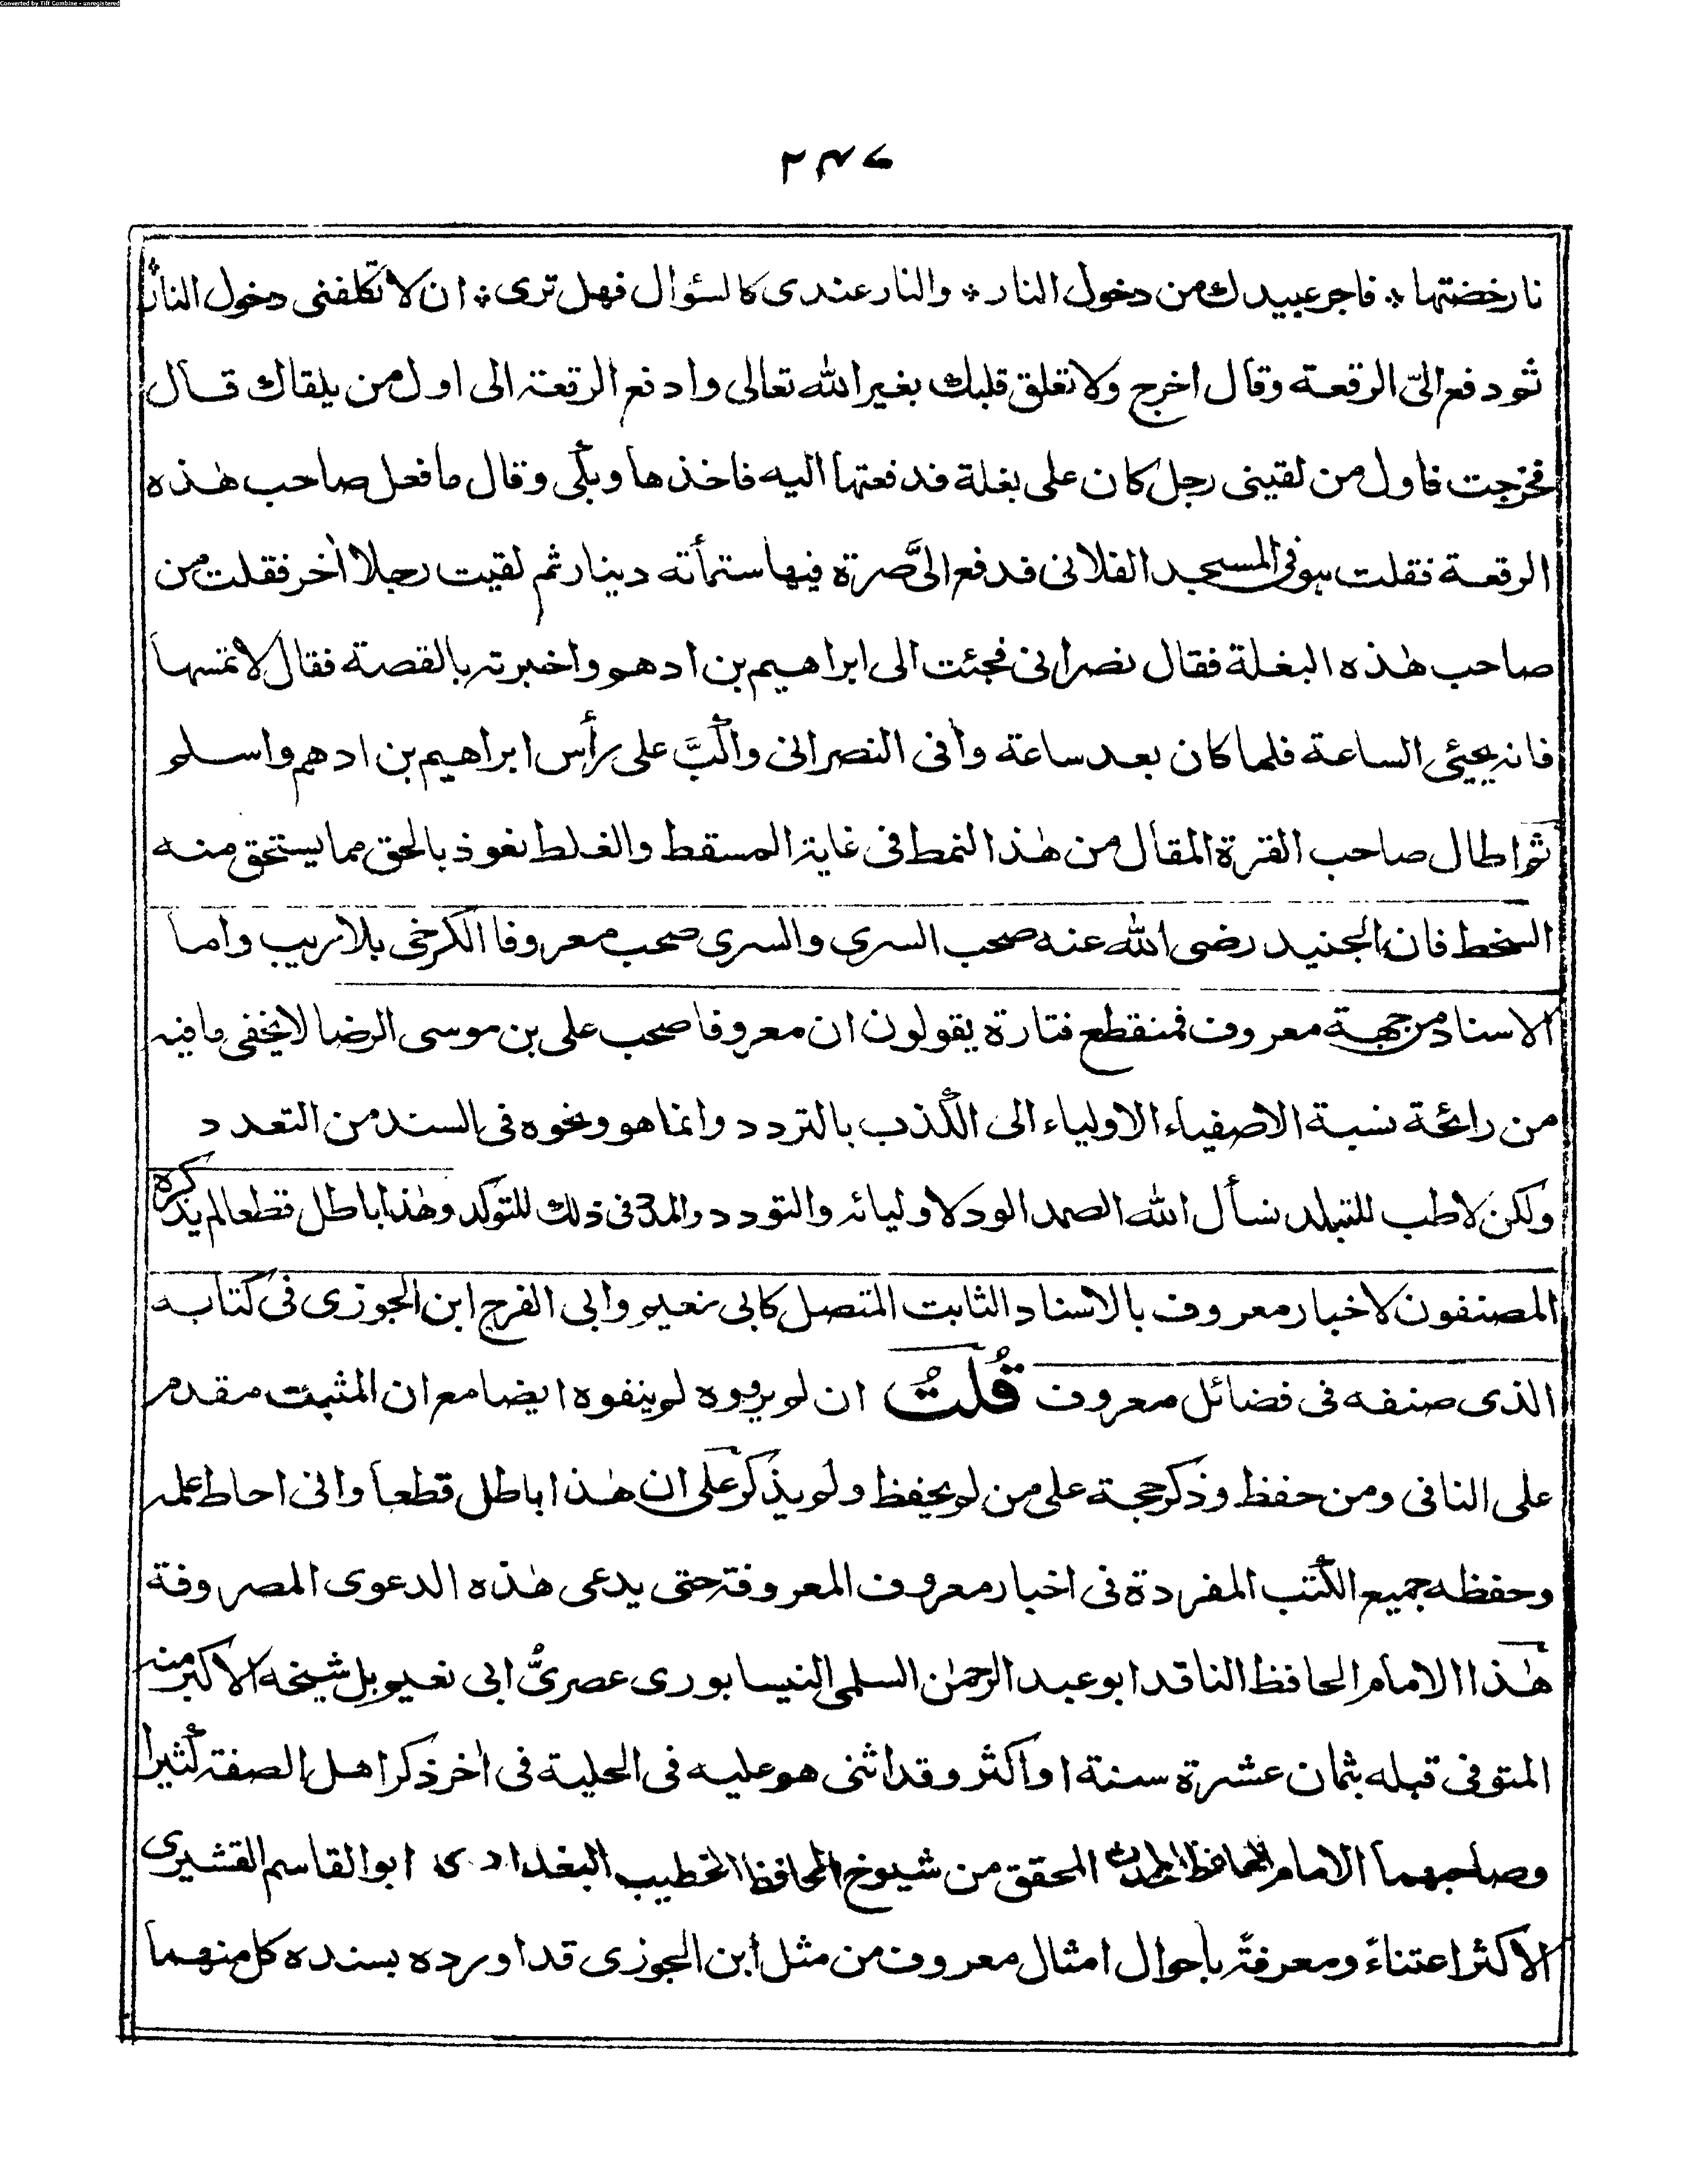 Converted by Tiff Combine - unregistered
۲۴۷
نار خضتها ؞ فاجر عبيدك من دخول النار ؞ والنار عندى كالسؤال فهل ترى ؞ ان لا تكلفنى دخول النار
ثم دفع الىّ الرقعة وقال اخرج ولا تعلق قلبك بغير الله تعالى وادفع الرقعة الى اول من يلقاك قال
فخرجت فاول من لقينى رجل كان على بغلة فدفعتها اليه فاخذها وبكى وقال ما فعل صاحب هٰذه
الرقعة فقلت هو فى المسجد الفلانى فدفع الىَّ صرة فيها ستمأته دينار ثم لقيت رجلا اٰخر فقلت من
صاحب هٰذه البغلة فقال نصرانى فجئت الى ابراهيم بن ادهم واخبرته بالقصة فقال لا تمسها
فانه يجيئ الساعة فلما كان بعد ساعة وأفى النصرانى واكبَّ على رأس ابراهيم بن ادهم واسلم
ثم اطال صاحب القرة المقال من هٰذا النمط فى غاية المسقط والغلط نعوذ بالحق مما يستحق منه
السخط فان الجنيد رضى الله عنه صحب السرى والسرى صحب معروفا الكرخى بلا ريب واما
الاسناد من جهة معروف فمنقطع فتارة يقولون ان معروفا صحب على بن موسى الرضا لا يخفى ما فيه
من رائحة نسبة الاصفياء الاولياء الى الكذب بالتردد وانما هو ونحوه فى السند من التعدد
ولكن لا طب للتبلد نسأل الله الصمد الود لاوليائه والتودد والمد فى ذلك للتوكد وهٰذا باطل قطعا لم يذكره
المصنفون لاخبار معروف بالاسناد الثابت المتصل كابى نعيم وابى الفرج ابن الجوزى فى كتابه
الذى صنفه فى فضائل معروف قُلتُ ان لم يرووه لم ينفوه ايضا مع ان المثبت مقدم
على النافى ومن حفظ وذكر حجة على من لم يحفظ ولم يذكر على ان هٰذا باطل قطعا وانى احاط علمه
وحفظه جميع الكتب المفردة فى اخبار معروف المعروفة حتى يدعى هٰذه الدعوى المصروفة
هٰذا الامام الحافظ الناقد ابو عبد الرحمٰن السلمى النيسابورى عصرىُّ ابى نعيم بل شيخه الاكبر منه
المتوفى قبله بثمان عشرة سنة او اكثر وقد اثنى هو عليه فى الحلية فى اٰخر ذكر اهل الصفة كثيرا
وصاحبهما الامام الحافظ المحدث المحقق من شيوخ الحافظ الخطيب البغدادى ابو القاسم القشيرى
الاكثر اعتناءً ومعرفةً بأحوال امثال معروف من مثل ابن الجوزى قد اورده بسنده كل منهما